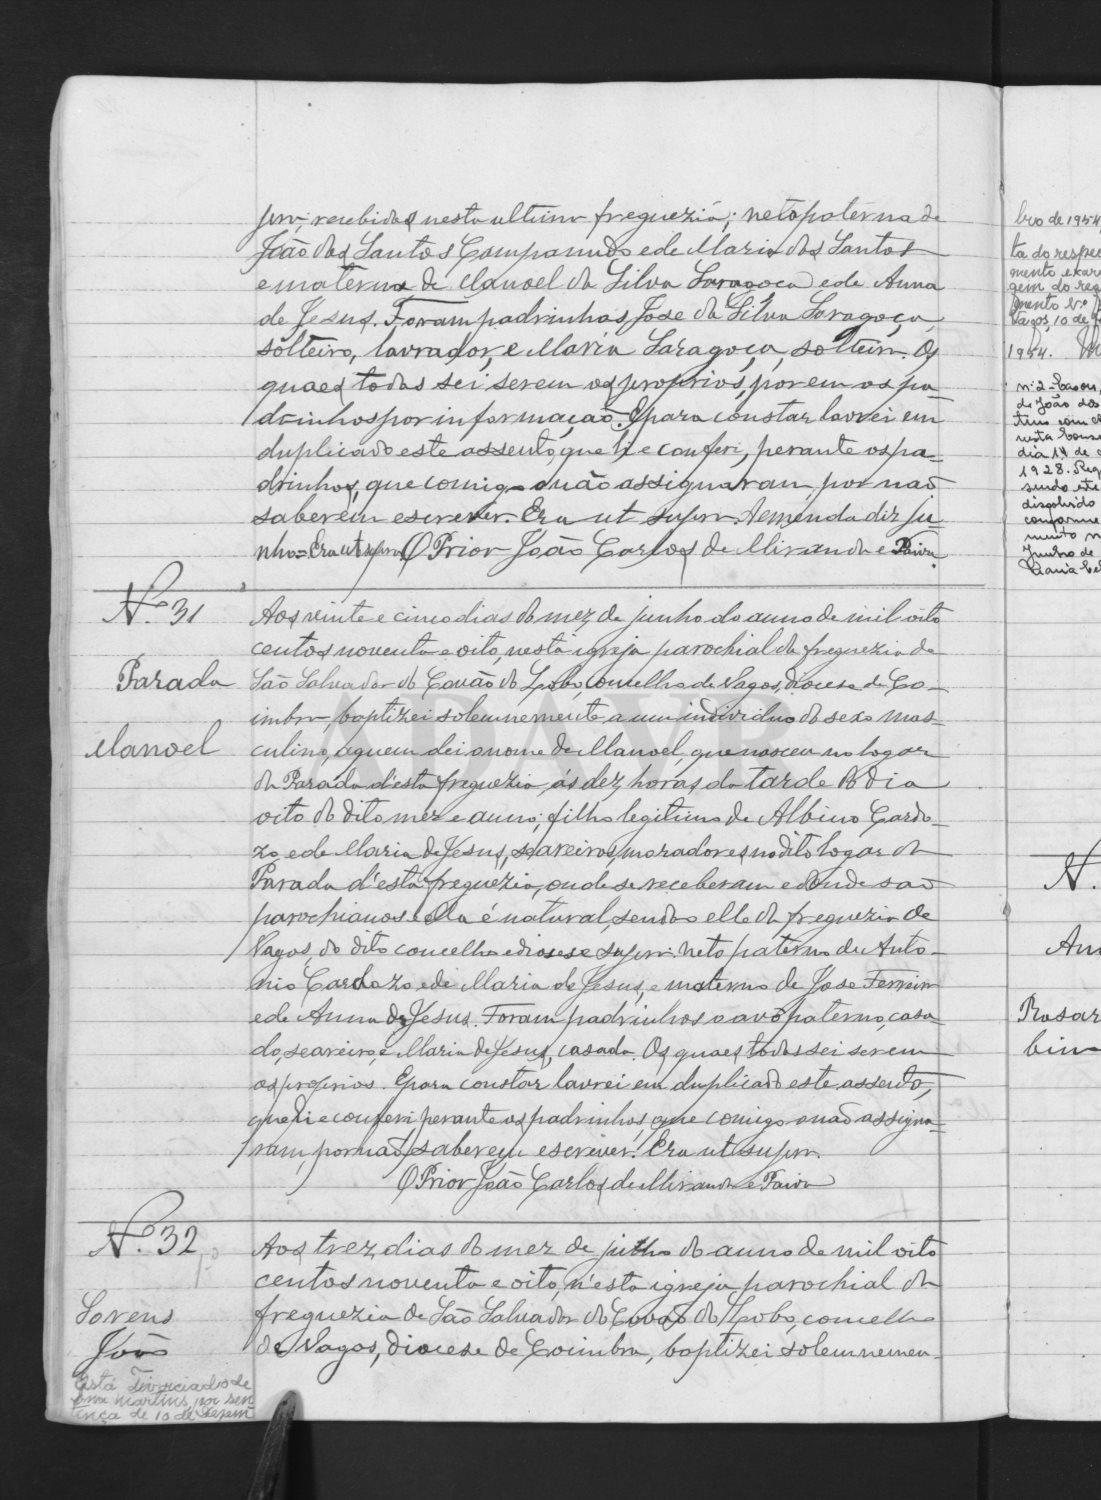 pra, recebidos nesta ultima freguezia; neto paterna de
João dos Santos Companudo e de Maria dos Santos
e materna de Manoel da Silva Saragoça e de Anna
de Jesus. Foram padrinhos Jose da Silva Saragoça,
solteiro, lavrador, e Maria Saragoça, solteira. Os
quaes todos sei serem os proprios, porem os pa-
drinhos por informação. E para constar lavrei em
duplicado este assento, que li e conferi, perante os pa-
drinhos, que comigo não assignaram, por não
saberem escrever. Era ut supra. A emenda diz ju-
nho = Era ut supra O Prior João Carlos de Miranda e Paiva.
Nº 31
Parada
Manoel
Aos vinte e cinco dias do mez de junho do anno de mil oito
centos noventa e oito, nesta igreja parochial da freguezia de
São Salvador do Covão do Lobo, concelho de Vagos, diocese de Co-
imbra, baptizei solemnemente a um individuo do sexo mas-
culino, a quem dei o nome de Manoel, que nasceu no logar
da Parada d'esta freguezia, ás dez horas da tarde do dia
oito do dito mez e anno; filho legitimo de Albino Cardo-
zo e de Maria de Jesus, seareiros, moradores no dito logar da
Parada d'esta freguezia, onde se receberam e donde são
parochianos e ella é natural, sendo elle da freguezia de
Vagos, do dito concelho e diocese supra. neto paterno de Anto-
nio Cardozo e de Maria de Jesus, e materno de Jose Ferreira
e de Anna de Jesus. Foram padrinhos o avô paterno, casa-
do, seareiro, e Maria de Jesus, casada. Os quaes todos sei serem
os proprios. E para constar lavrei em duplicado este assento,
que li e conferi perante os padrinhos, que comigo não assigna-
ram, por não saberem escrever. Era ut supra.
O Prior João Carlos de Miranda e Paiva
Nº 32
Lorens
João
Está divorciado de
martins, por sen
tença de 10 de Dezem
Aos trez dias do mez de julho do anno de mil oito
centos noventa e oito, n'esta igreja parochial da
freguezia de São Salvador do Covão do Lobo, concelho
de Vagos, diocese de Coimbra, baptizei solemnemen-
bro de 1954
ta do respec
mento exar
gem do reg
Vagos, 10 de
1954.
nº 2 - Casou,
de João dos
dia 14 de
1928. Reg
sendo este
dissolvido
conforme
mento n
Junho de
N.
Rosar
bino